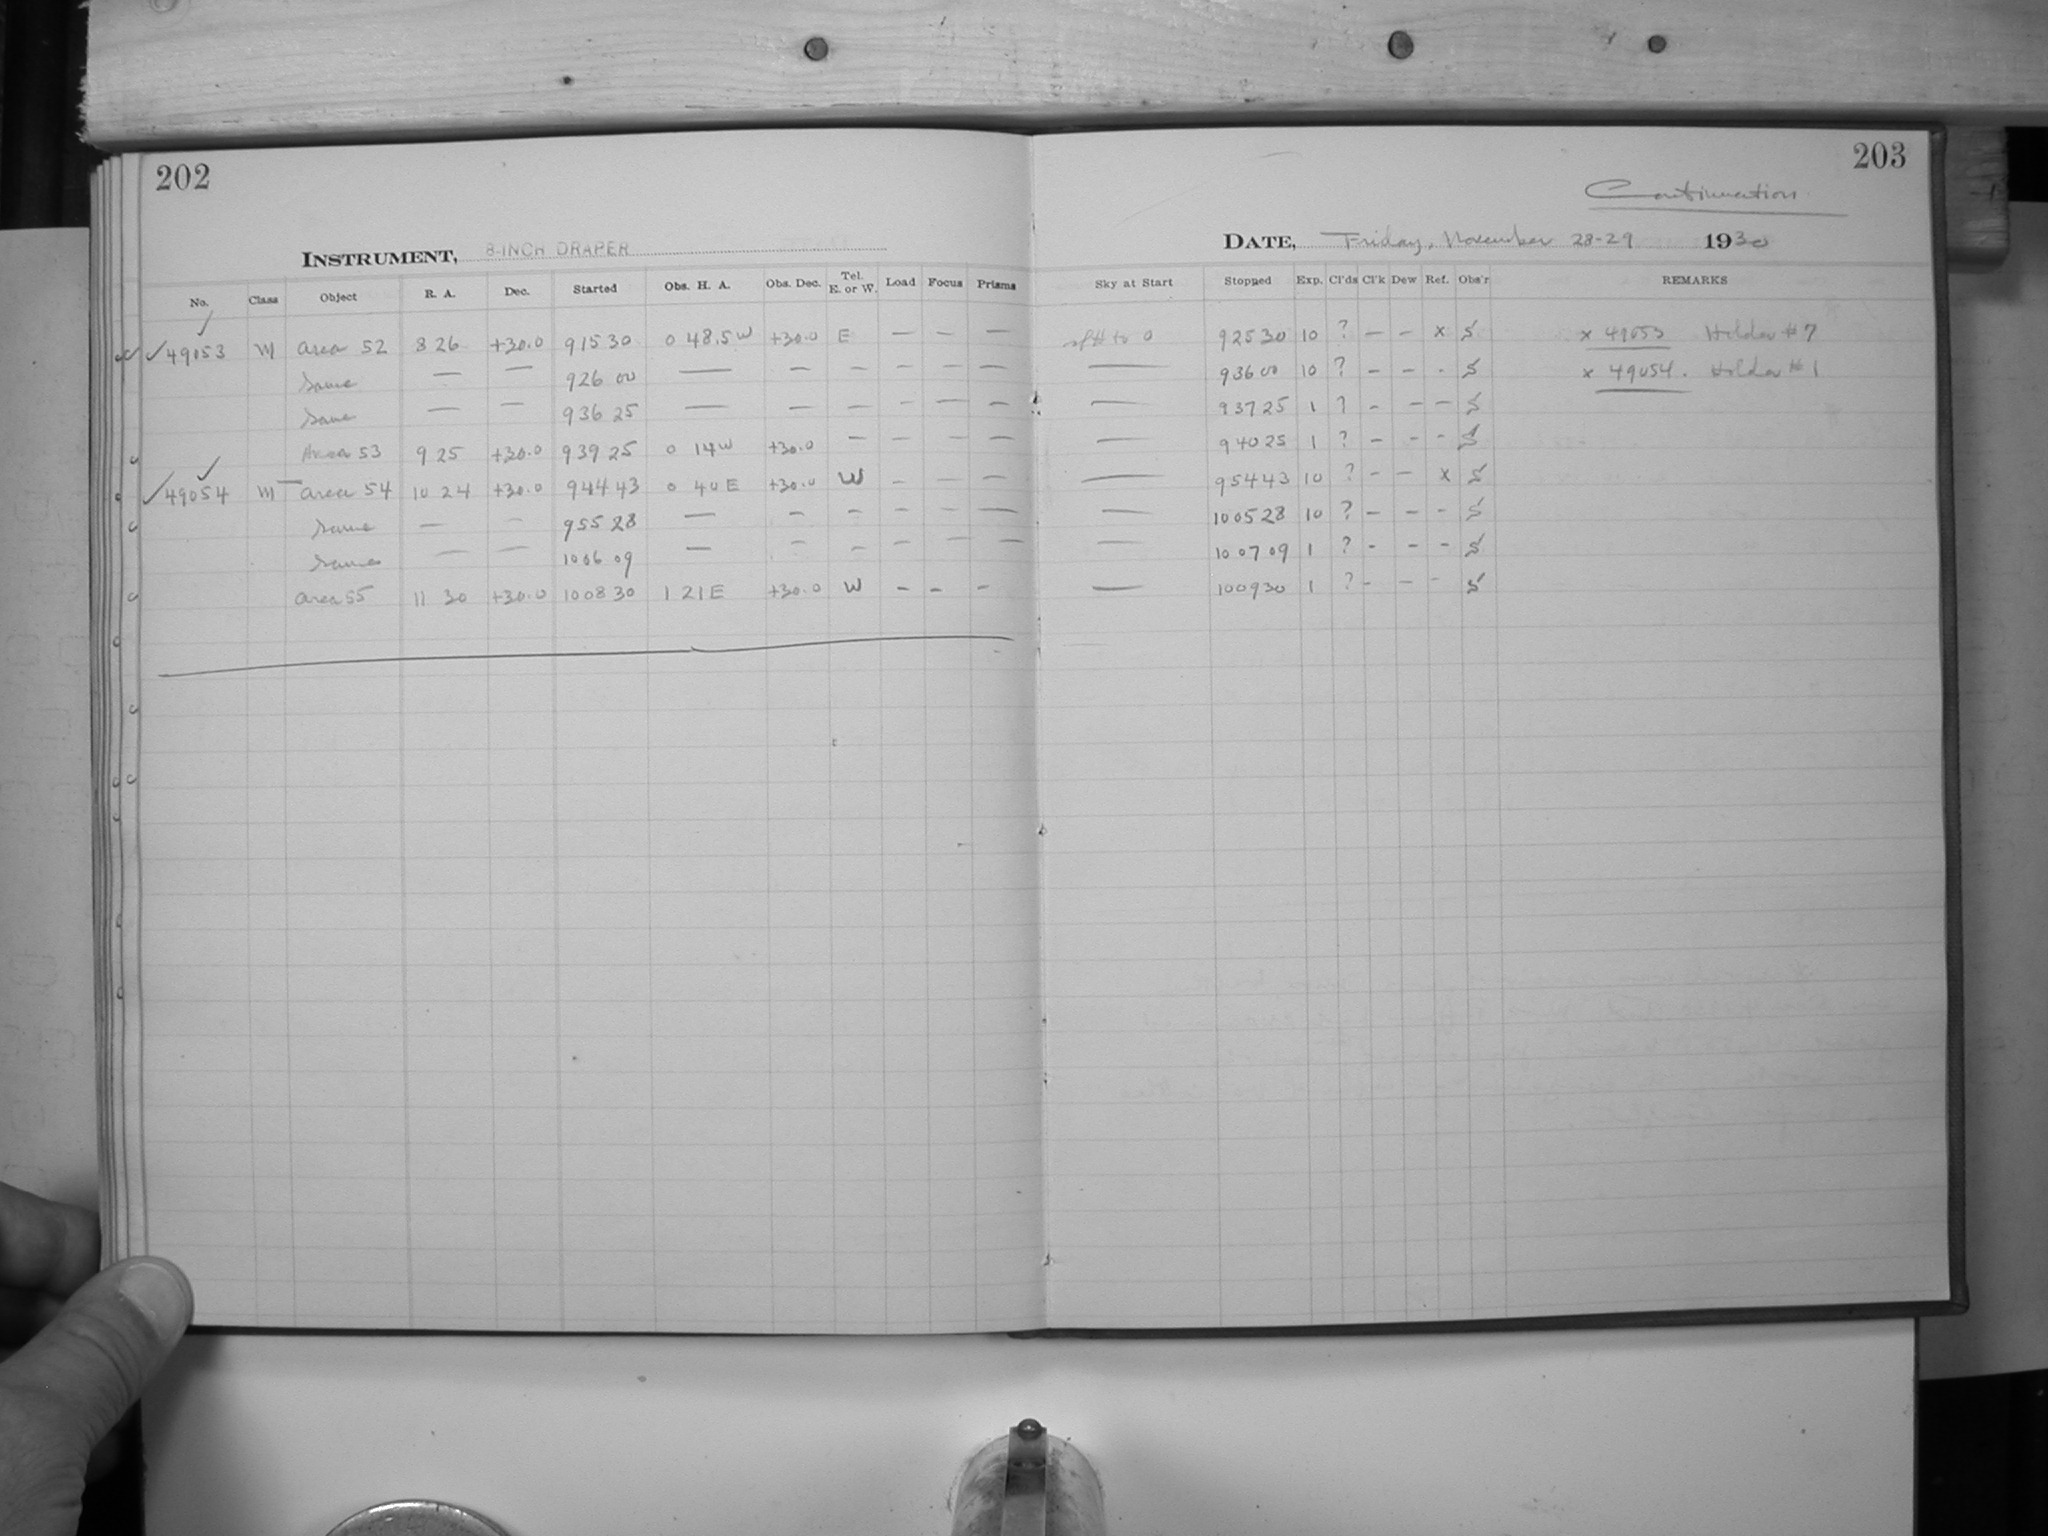 202
203
Continuation
INSTRUMENT, 8-INCH DRAPER
DATE, Friday, November 28-29 1930
No. Class Object R. A. Dec. Started Obs. H. A. Obs. Dec. Tel. E. or W. Load Focus Prisms Sky at Start Stopped Exp. Cl'ds Cl'k Dew Ref. Obs'r REMARKS
✓ 49053 M Area 52 8 26 +30.0 9 15 30 0 48.5 W +30.0 E — — — to 0 9 25 30 10 ? — — x S x 49053 Holder #7
Same — — 9 26 00 — — — — — — — 9 36 00 10 ? — — - S x 49054. Holder #1
Same — — 9 36 25 — — — — — — — 9 37 25 1 ? - — — S
Area 53 9 25 +30.0 9 39 25 0 14 W +30.0 — — — — — 9 40 25 1 ? - - - S
✓ 49054 M Area 54 10 24 +30.0 9 44 43 0 40 E +30.0 W - — — — 9 54 43 10 ? - — x S
Same — - 9 55 28 — — — — — — — 10 05 28 10 ? — — - S
Same — — 10 06 09 — — — — — — — 10 07 09 1 ? - - - S
Area 55 11 30 +30.0 10 08 30 1 21 E +30.0 W - - - — 10 09 30 1 ? - — - S